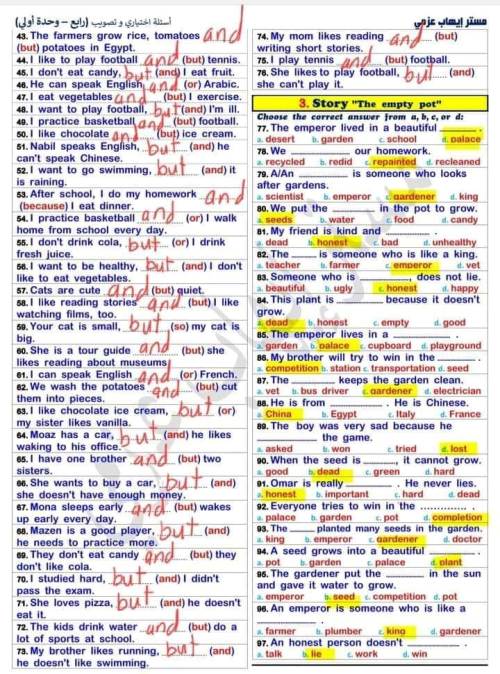 أسئلة اختياري و تصويب (رابع - وحدة أولي)
مستر إيهاب عزمي
43. The farmers grow rice, tomatoes and
(but) potatoes in Egypt.
44. I like to play football and (but) tennis.
45. I don't eat candy, but (and) I eat fruit.
46. He can speak English and (or) Arabic.
47. I eat vegetables and (but) I exercise.
48. I want to play football, but (and) I'm ill.
49. I practice basketball and (but) football.
50. I like chocolate and (but) ice cream.
51. Nabil speaks English, but (and) he
can't speak Chinese.
52. I want to go swimming, but (and) it
is raining.
53. After school, I do my homework and
(because) I eat dinner.
54. I practice basketball and (or) I walk
home from school every day.
55. I don't drink cola, but (or) I drink
fresh juice.
56. I want to be healthy, but (and) I don't
like to eat vegetables.
57. Cats are cute and (but) quiet.
58. I like reading stories and (but) I like
watching films, too.
59. Your cat is small, but (so) my cat is
big.
60. She is a tour guide and (but) she
likes reading about museums
61. I can speak English and (or) French.
62. We wash the potatoes and (but) cut
them into pieces.
63. I like chocolate ice cream, but (or)
my sister likes vanilla.
64. Moaz has a car, but (and) he likes
waking to his office.
65. I have one brother and (but) two
sisters.
66. She wants to buy a car, but (and)
she doesn't have enough money.
67. Mona sleeps early and (but) wakes
up early every day.
68. Mazen is a good player, but (and)
he needs to practice more.
69. They don't eat candy and (but) they
don't like cola.
70. I studied hard, but (and) I didn't
pass the exam.
71. She loves pizza, but (and) he doesn't
eat it.
72. The kids drink water and (but) do a
lot of sports at school.
73. My brother likes running, but (and)
he doesn't like swimming.
74. My mom likes reading and (but)
writing short stories.
75. I play tennis and (but) football.
76. She likes to play football, but (and)
she can't play it.
3. Story "The empty pot"
Choose the correct answer from a, b, c, or d:
77. The emperor lived in a beautiful ............ .
a. desert b. garden c. school d. palace
78. We ............ our homework.
a. recycled b. redid c. repainted d. recleaned
79. A/An ............ is someone who looks
after gardens.
a. scientist b. emperor c. gardener d. king
80. We put the ............ in the pot to grow.
a. seeds b. water c. food d. candy
81. My friend is kind and ............ .
a. dead b. honest c. bad d. unhealthy
82. The ............ is someone who is like a king.
a. teacher b. farmer c. emperor d. vet
83. Someone who is ............, does not lie.
a. beautiful b. ugly c. honest d. happy
84. This plant is ............ because it doesn't
grow.
a. dead b. honest c. empty d. good
85. The emperor lives in a ............ .
a. garden b. palace c. cupboard d. playground
86. My brother will try to win in the ............ .
a. competition b. station c. transportation d. seed
87. The ............ keeps the garden clean.
a. vet b. bus driver c. gardener d. electrician
88. He is from ............ . He is Chinese.
a. China b. Egypt c. Italy d. France
89. The boy was very sad because he
............ the game.
a. asked b. won c. tried d. lost
90. When the seed is ............, it cannot grow.
a. good b. dead c. green d. hard
91. Omar is really ............ . He never lies.
a. honest b. important c. hard d. dead
92. Everyone tries to win in the ............ .
a. palace b. garden c. pot d. completion
93. The ............ planted many seeds in the garden.
a. king b. emperor c. gardener d. doctor
94. A seed grows into a beautiful ............ .
a. pot b. garden c. palace d. plant
95. The gardener put the ............ in the sun
and gave it water to grow.
a. emperor b. seed c. competition d. pot
96. An emperor is someone who is like a
............ .
a. farmer b. plumber c. king d. gardener
97. An honest person doesn't ............ .
a. talk b. lie c. work d. win